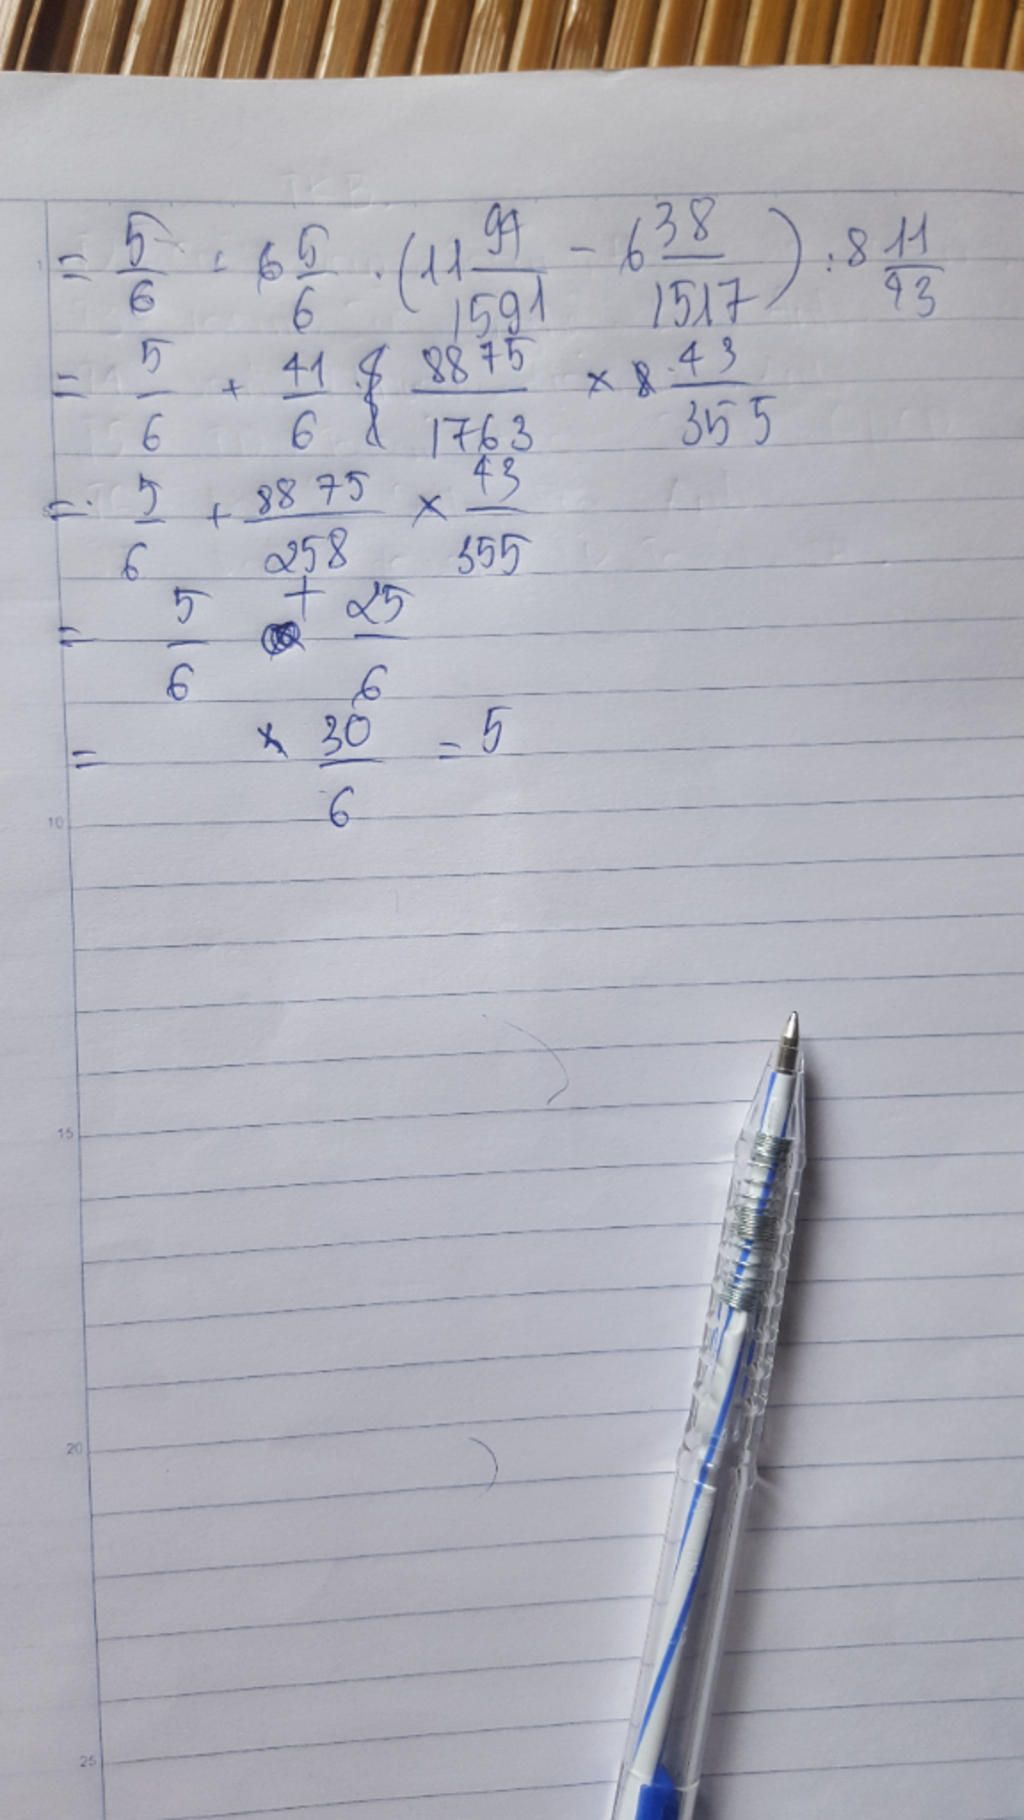 = 5/6 + 6 5/6 . (11 94/1591 - 6 38/1517) : 8 11/43
= 5/6 + 41/6 . 8875/1763 × 43/355
= 5/6 + 8875/258 × 43/355
= 5/6 + 25/6
= 30/6 = 5
10
15
20
25